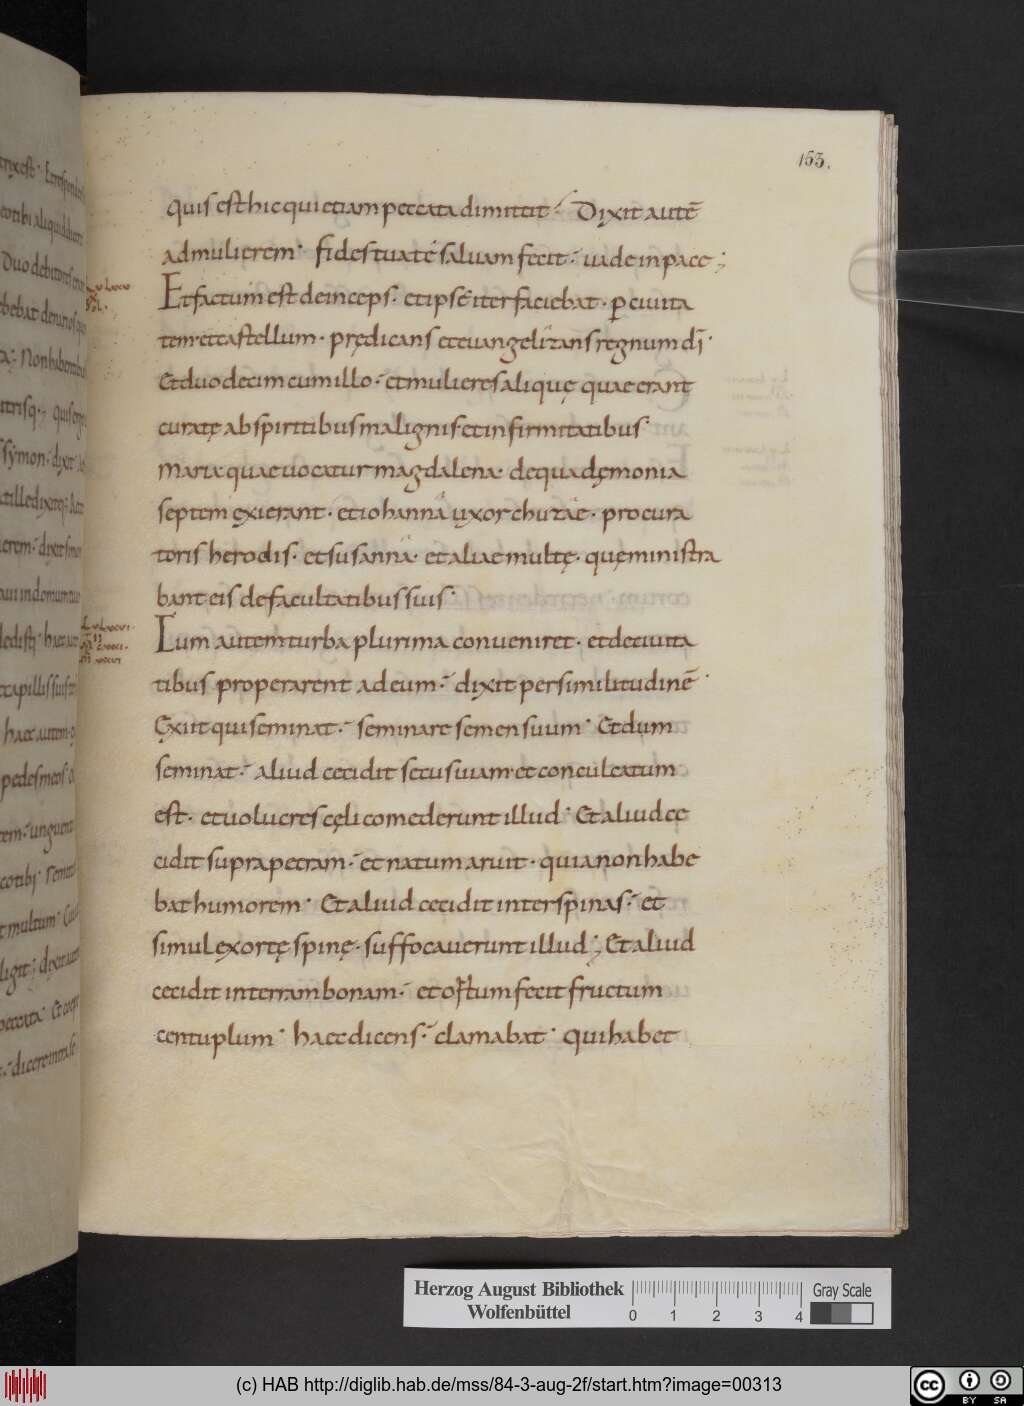 153.
quis est hic qui etiam peccata dimittit· Dixit autē
ad mulierem· fides tua te salvam fecit· vade in pace;
Et factum est deinceps· et ipse iter faciebat· per civita
tem et castellum· prędicans et evangelizans regnum dī·
Et duodecim cum illo· et mulieres alique quae erant
curatę ab spiritibus malignis et infirmitatibus·
maria quae vocatur magdalena· de qua dęmonia
septem exierant· et iohanna uxor chuzae· procura
toris herodis· et susanna· et aliae multę· quę ministra
bant eis de facultatibus suis·
Cum autem turba plurima conveniret· et de civita
tibus properarent ad eum· dixit per similitudinē·
Exiit qui seminat· seminare semen suum· Et dum
seminat· aliud cecidit secus viam et conculcatum
est· et volucres cęli comederunt illud· Et aliud ce
cidit supra petram· et natum aruit· quia non habe
bat humorem· Et aliud cecidit inter spinas· et
simul exortę spinę· suffocaverunt illud; Et aliud
cecidit in terram bonam· et ortum fecit fructum
centuplum· haec dicens· clamabat· qui habet
Herzog August Bibliothek
Wolfenbüttel
0 1 2 3 4
Gray Scale
(c) HAB http://diglib.hab.de/mss/84-3-aug-2f/start.htm?image=00313
cc BY SA